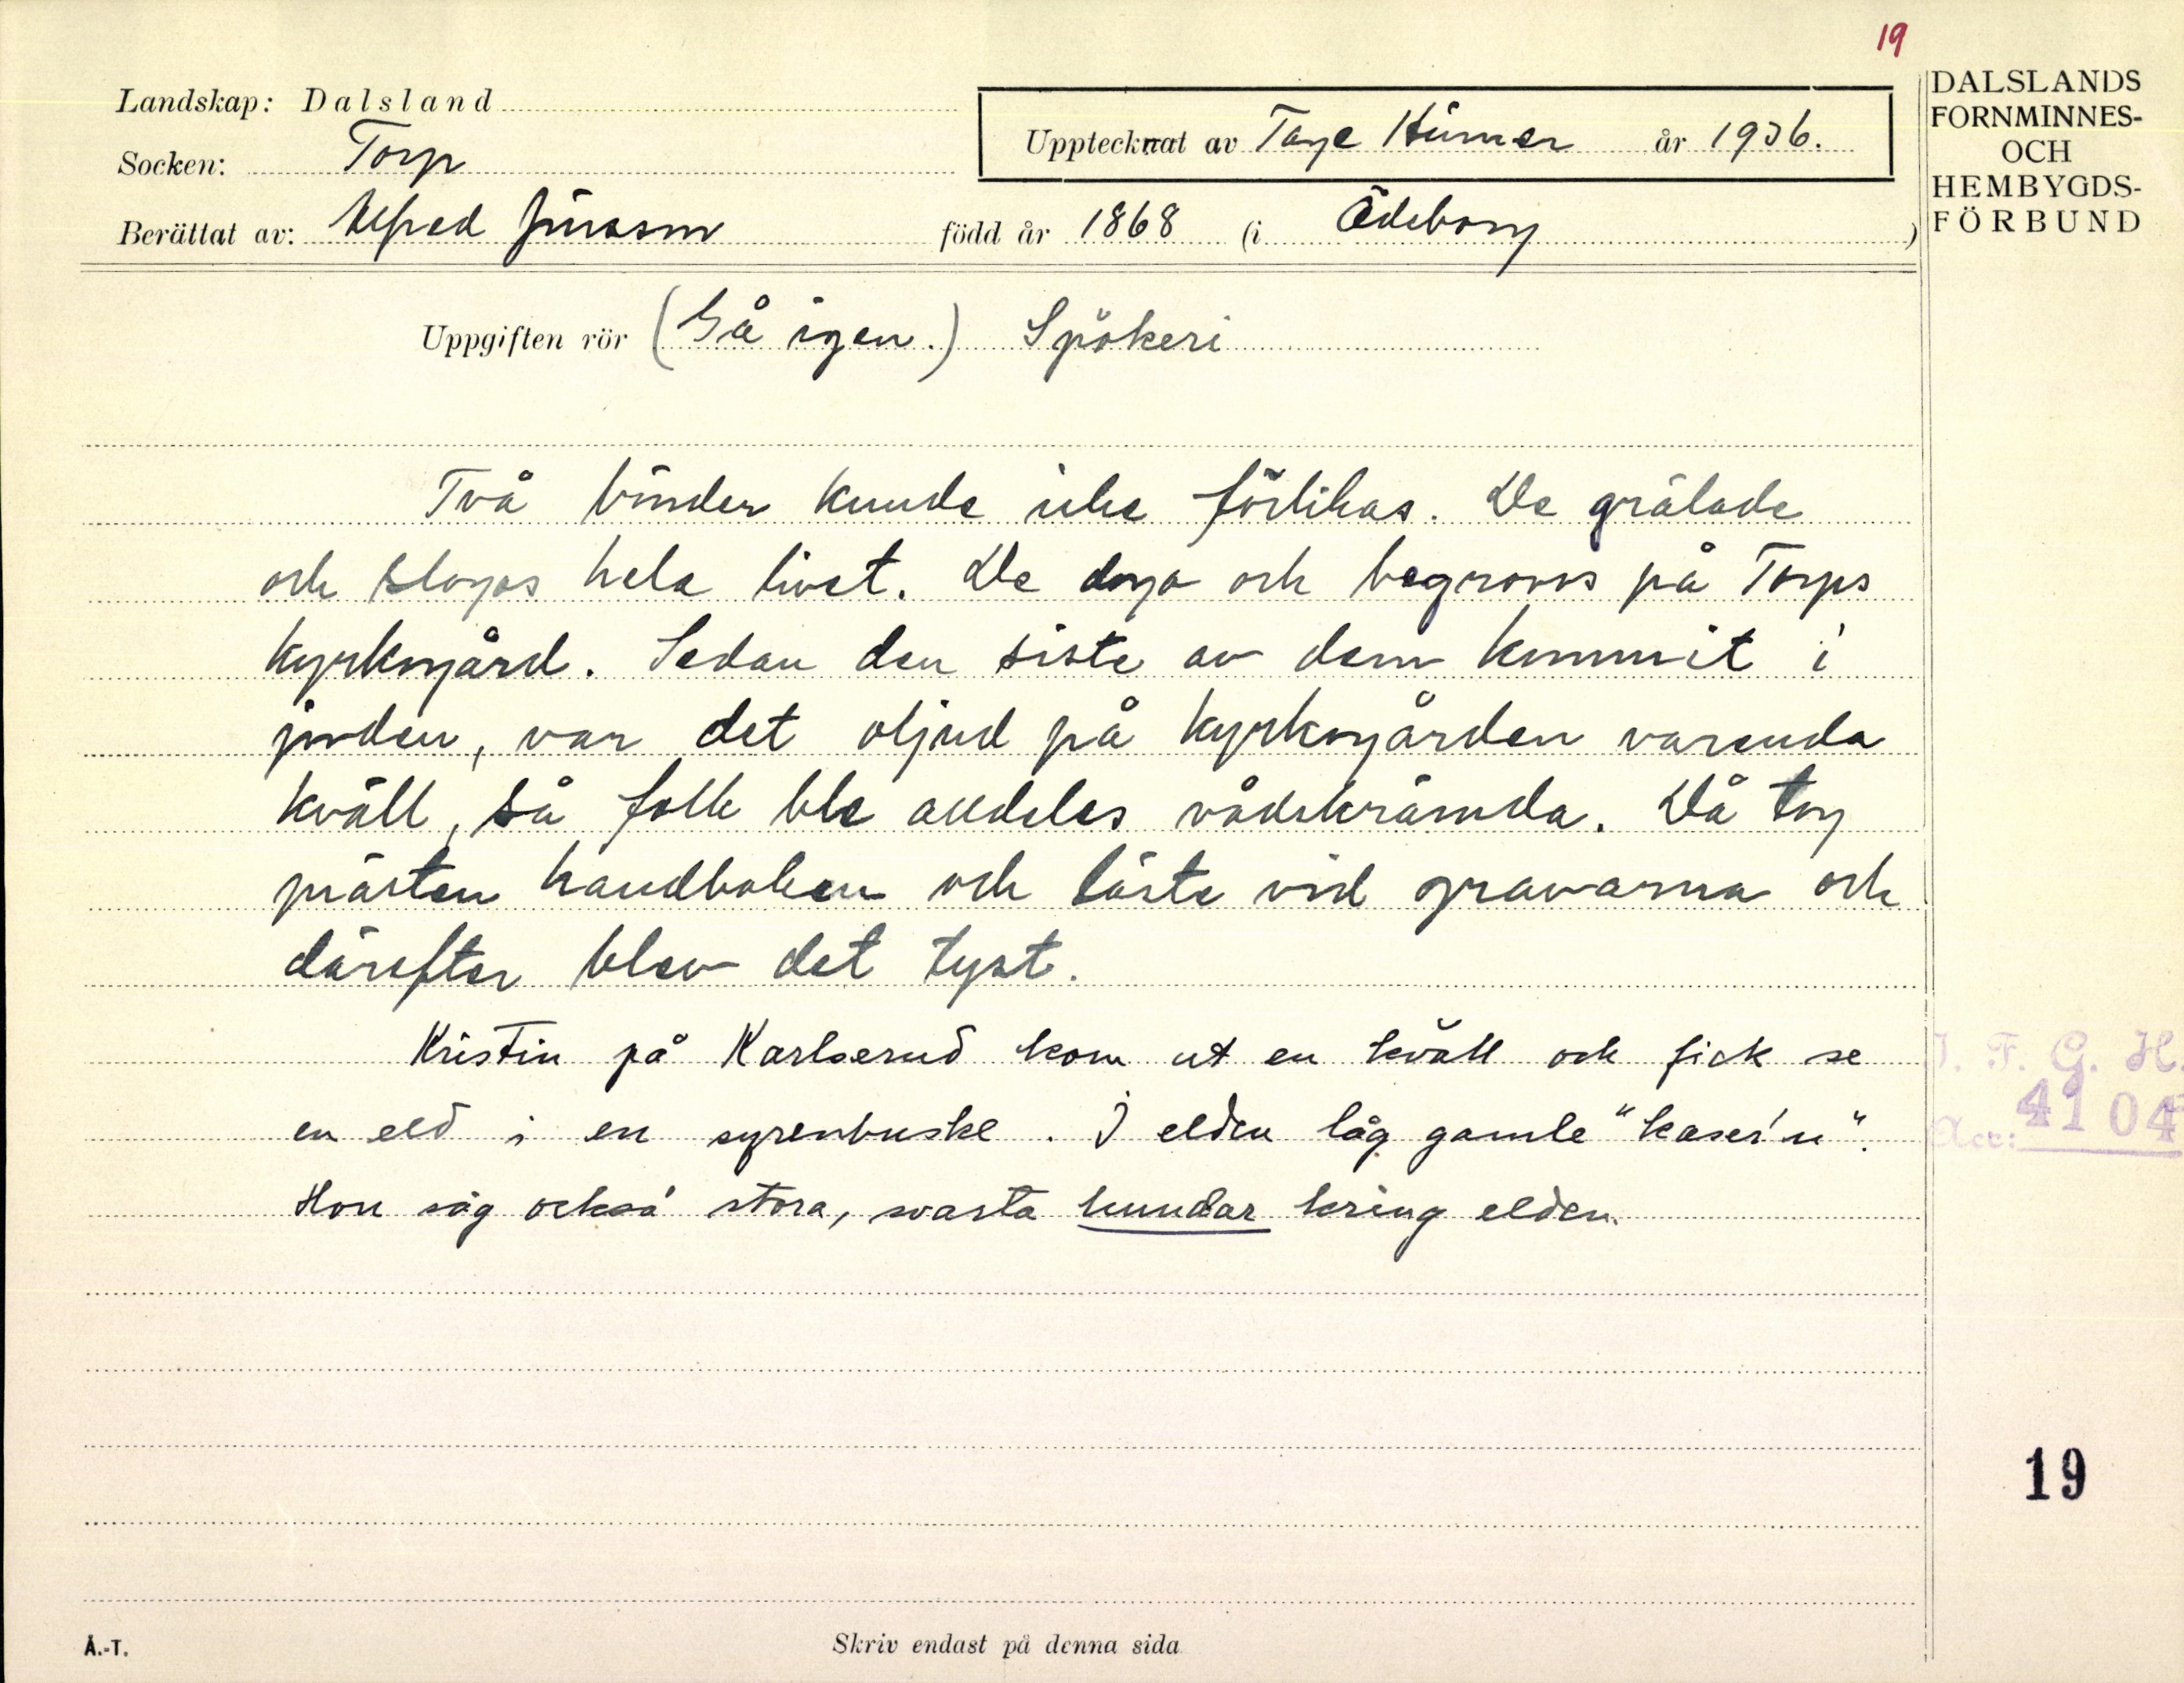 19
Landskap: Dalsland
Upptecknat av Tage Hümer år 1936.
Socken: Torp
Berättat av: Alfred Jonsson född år 1868 (i Ödeborg)
DALSLANDS
FORNMINNES-
OCH
HEMBYGDS-
FÖRBUND
Uppgiften rör (Gå igen.) Spökeri
Två bönder kunde icke förlikas. De grälade
och slogos hela livet. De dogo och begrovos på Torps
kyrkogård. Sedan den siste av dem kommit i
jorden, var det oljud på kyrkogården varenda
kväll, så folk ble alldeles vådskrämda. Då tog
prästen handboken och läste vid gravarna och
därefter blev det tyst.
Kristin på Karlserud kom ut en kväll och fick se
en eld i en syrenbuske. I elden låg gamle "kaser'n".
Hon såg också stora, svarta hundar kring elden.
I. F. G. H.
Acc: 4104
19
Å.-T.
Skriv endast på denna sida